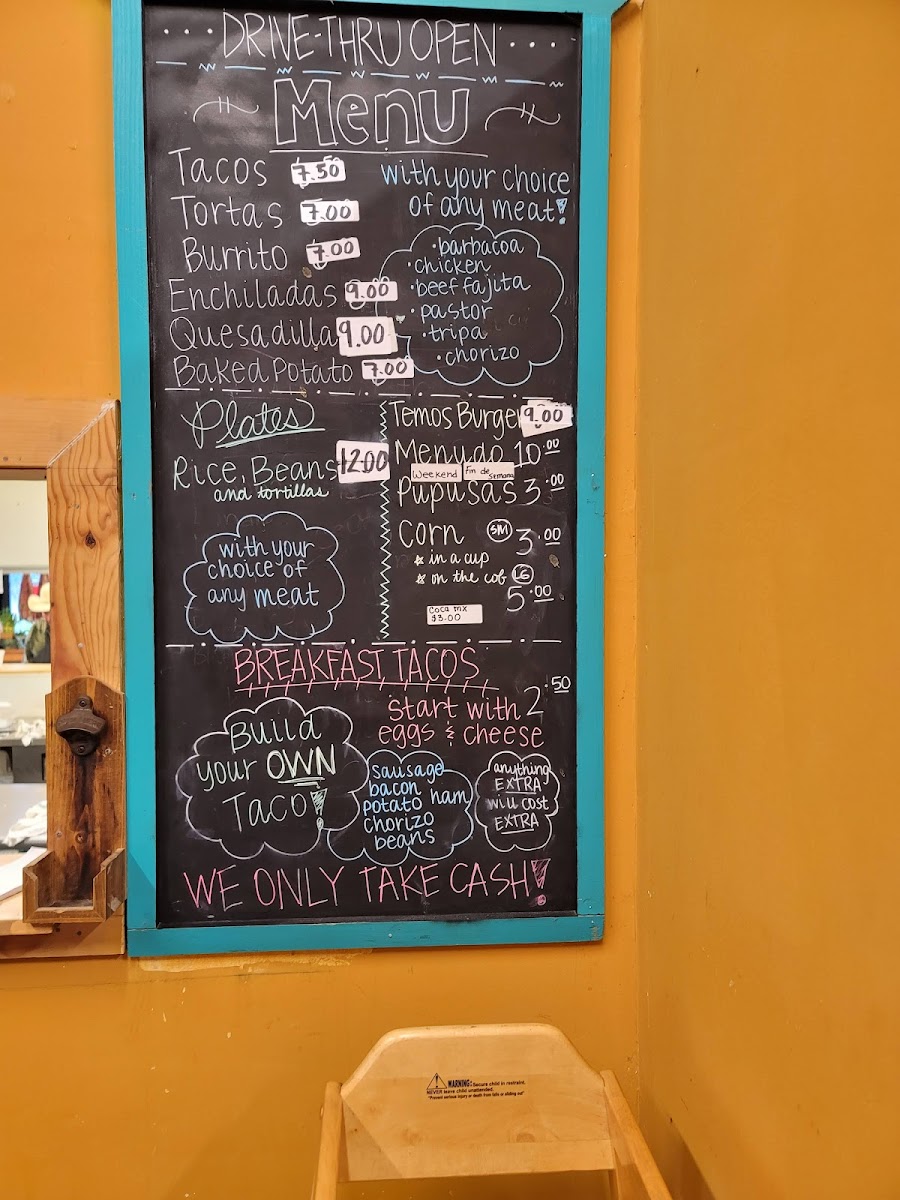 ...DRIVE-THRU OPEN...
Menu
Tacos 7.50
Tortas 7.00
Burrito 7.00
Enchiladas 9.00
Quesadilla 9.00
Baked Potato 7.00
with your choice
of any meat!
• barbacoa
• chicken
• beef fajita
• pastor
• tripa
• chorizo
Plates
Rice, Beans 12.00
and tortillas
with your
choice of
any meat
Temos Burger 9.00
Menudo 10.00
Weekend Fin de semana
Pupusas 3.00
Corn SM 3.00
* in a cup
* on the cob LG
5.00
Coca mx
$3.00
BREAKFAST TACOS
start with 2.50
eggs & cheese
Build
your OWN
Taco!
sausage
bacon
potato ham
chorizo
beans
anything
EXTRA
will cost
EXTRA
WE ONLY TAKE CASH!
WARNING: Secure child in restraint.
NEVER leave child unattended.
"Prevent serious injury or death from falls or sliding out"